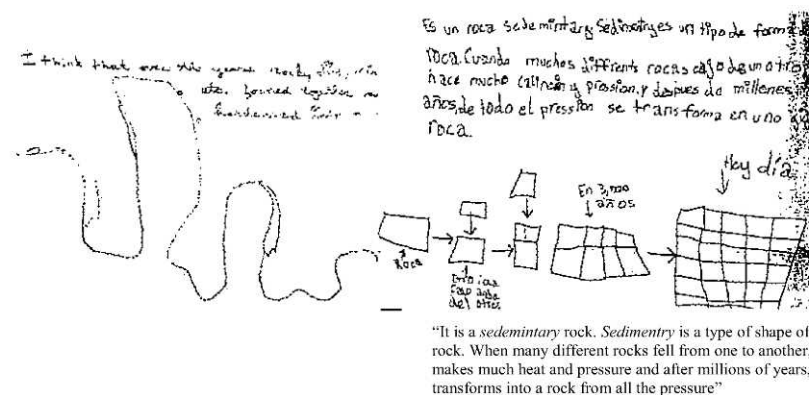 I think that over the years rocks,
etc. together
Es un roca sedemintary Sedimetry es un tipo de forma
roca. Cuando muchos diffrents rocas cajo de un otro
hace mucho y pression, y despues de millenes
años, de todo el pression se transforma en uno
roca.
Roca
del otres
En 3,000
años
Hoy día
"It is a sedemintary rock. Sedimentry is a type of shape of
rock. When many different rocks fell from one to another,
makes much heat and pressure and after millions of years,
transforms into a rock from all the pressure"